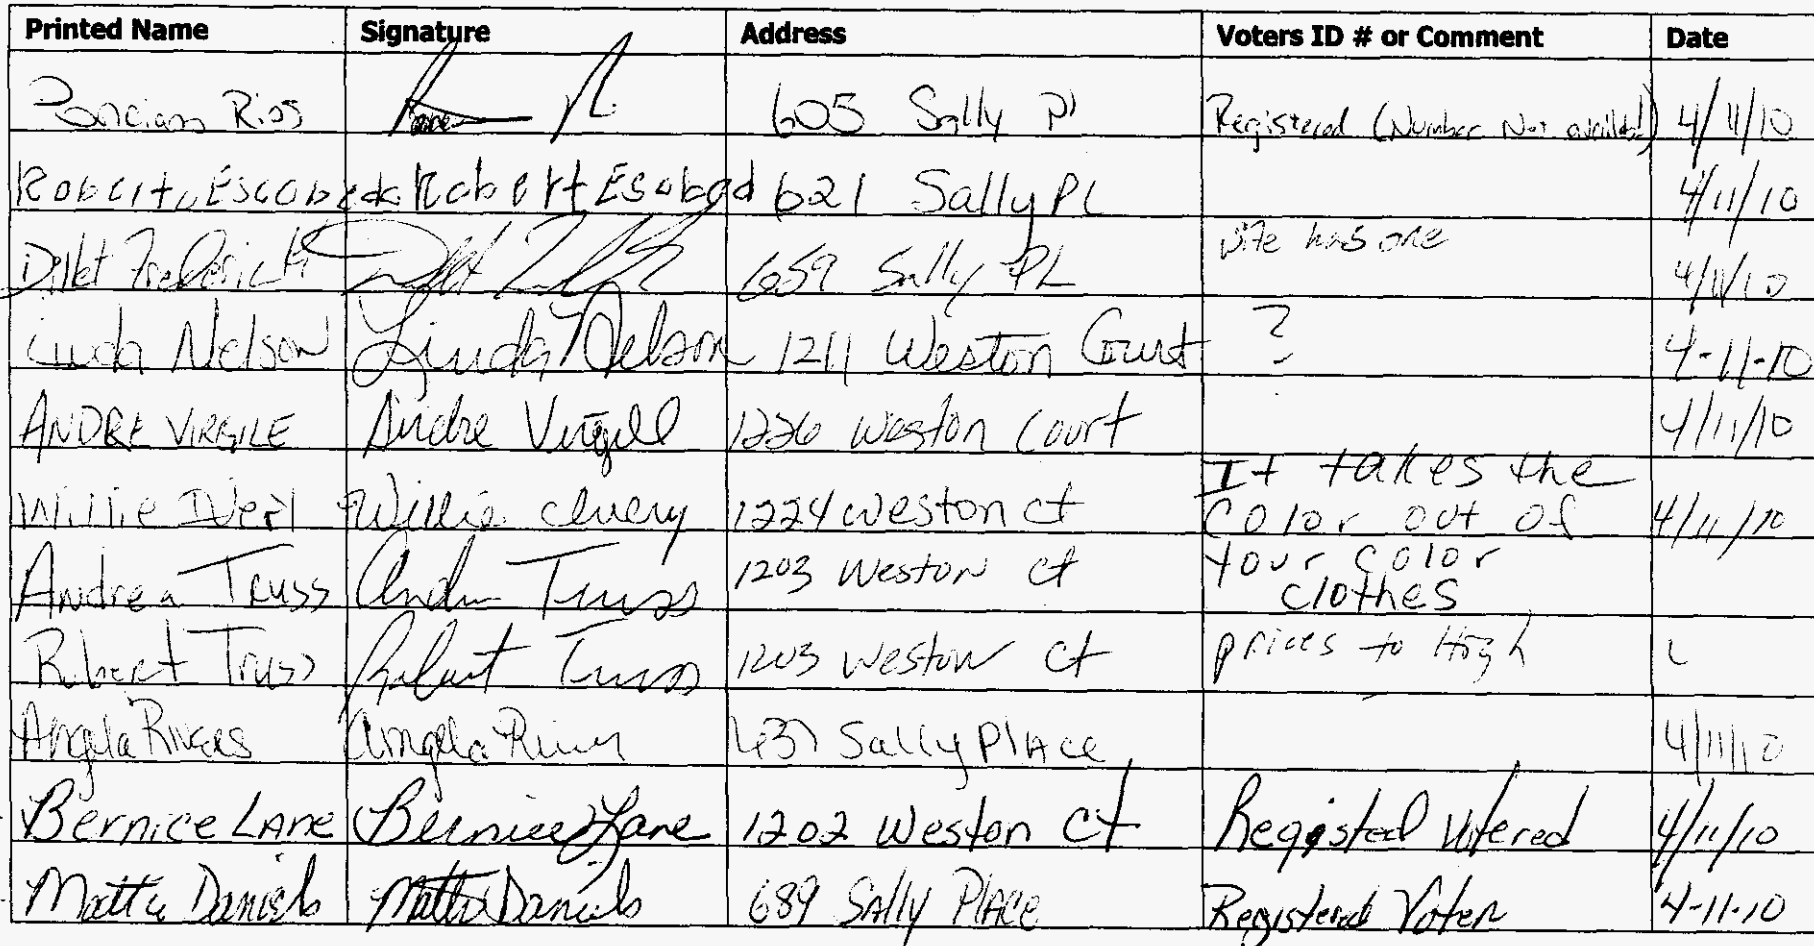 Printed Name Signature Address Voters ID # or Comment Date
Rios 605 Sally Pl Registered (Number Not availabl) 4/11/10
Roberto Escobedo Robert Escobed 621 Sally PL 4/11/10
Frederick 659 Sally PL wife has one 4/11/10
Linda Nelson Linda Nelson 1211 Weston Court ? 4-11-10
ANDRE VIRGILE Andre Virgill 1226 Weston Court 4/11/10
Willie Willie 1224 Weston ct It takes the
color out of 4/11/10
Andrea Truss Andrea Truss 1203 Weston ct your color
clothes
Robert Truss Robert Truss 1203 Weston Ct prices to High
Angela Rivers Angela River 637 Sally PlAce 4/11/10
Bernice LAne Bernice Lane 1202 Weston Ct Registed Votered 4/11/10
Mattie Daniels Mattie Daniels 689 SAlly PlAce Registered Voter 4-11-10